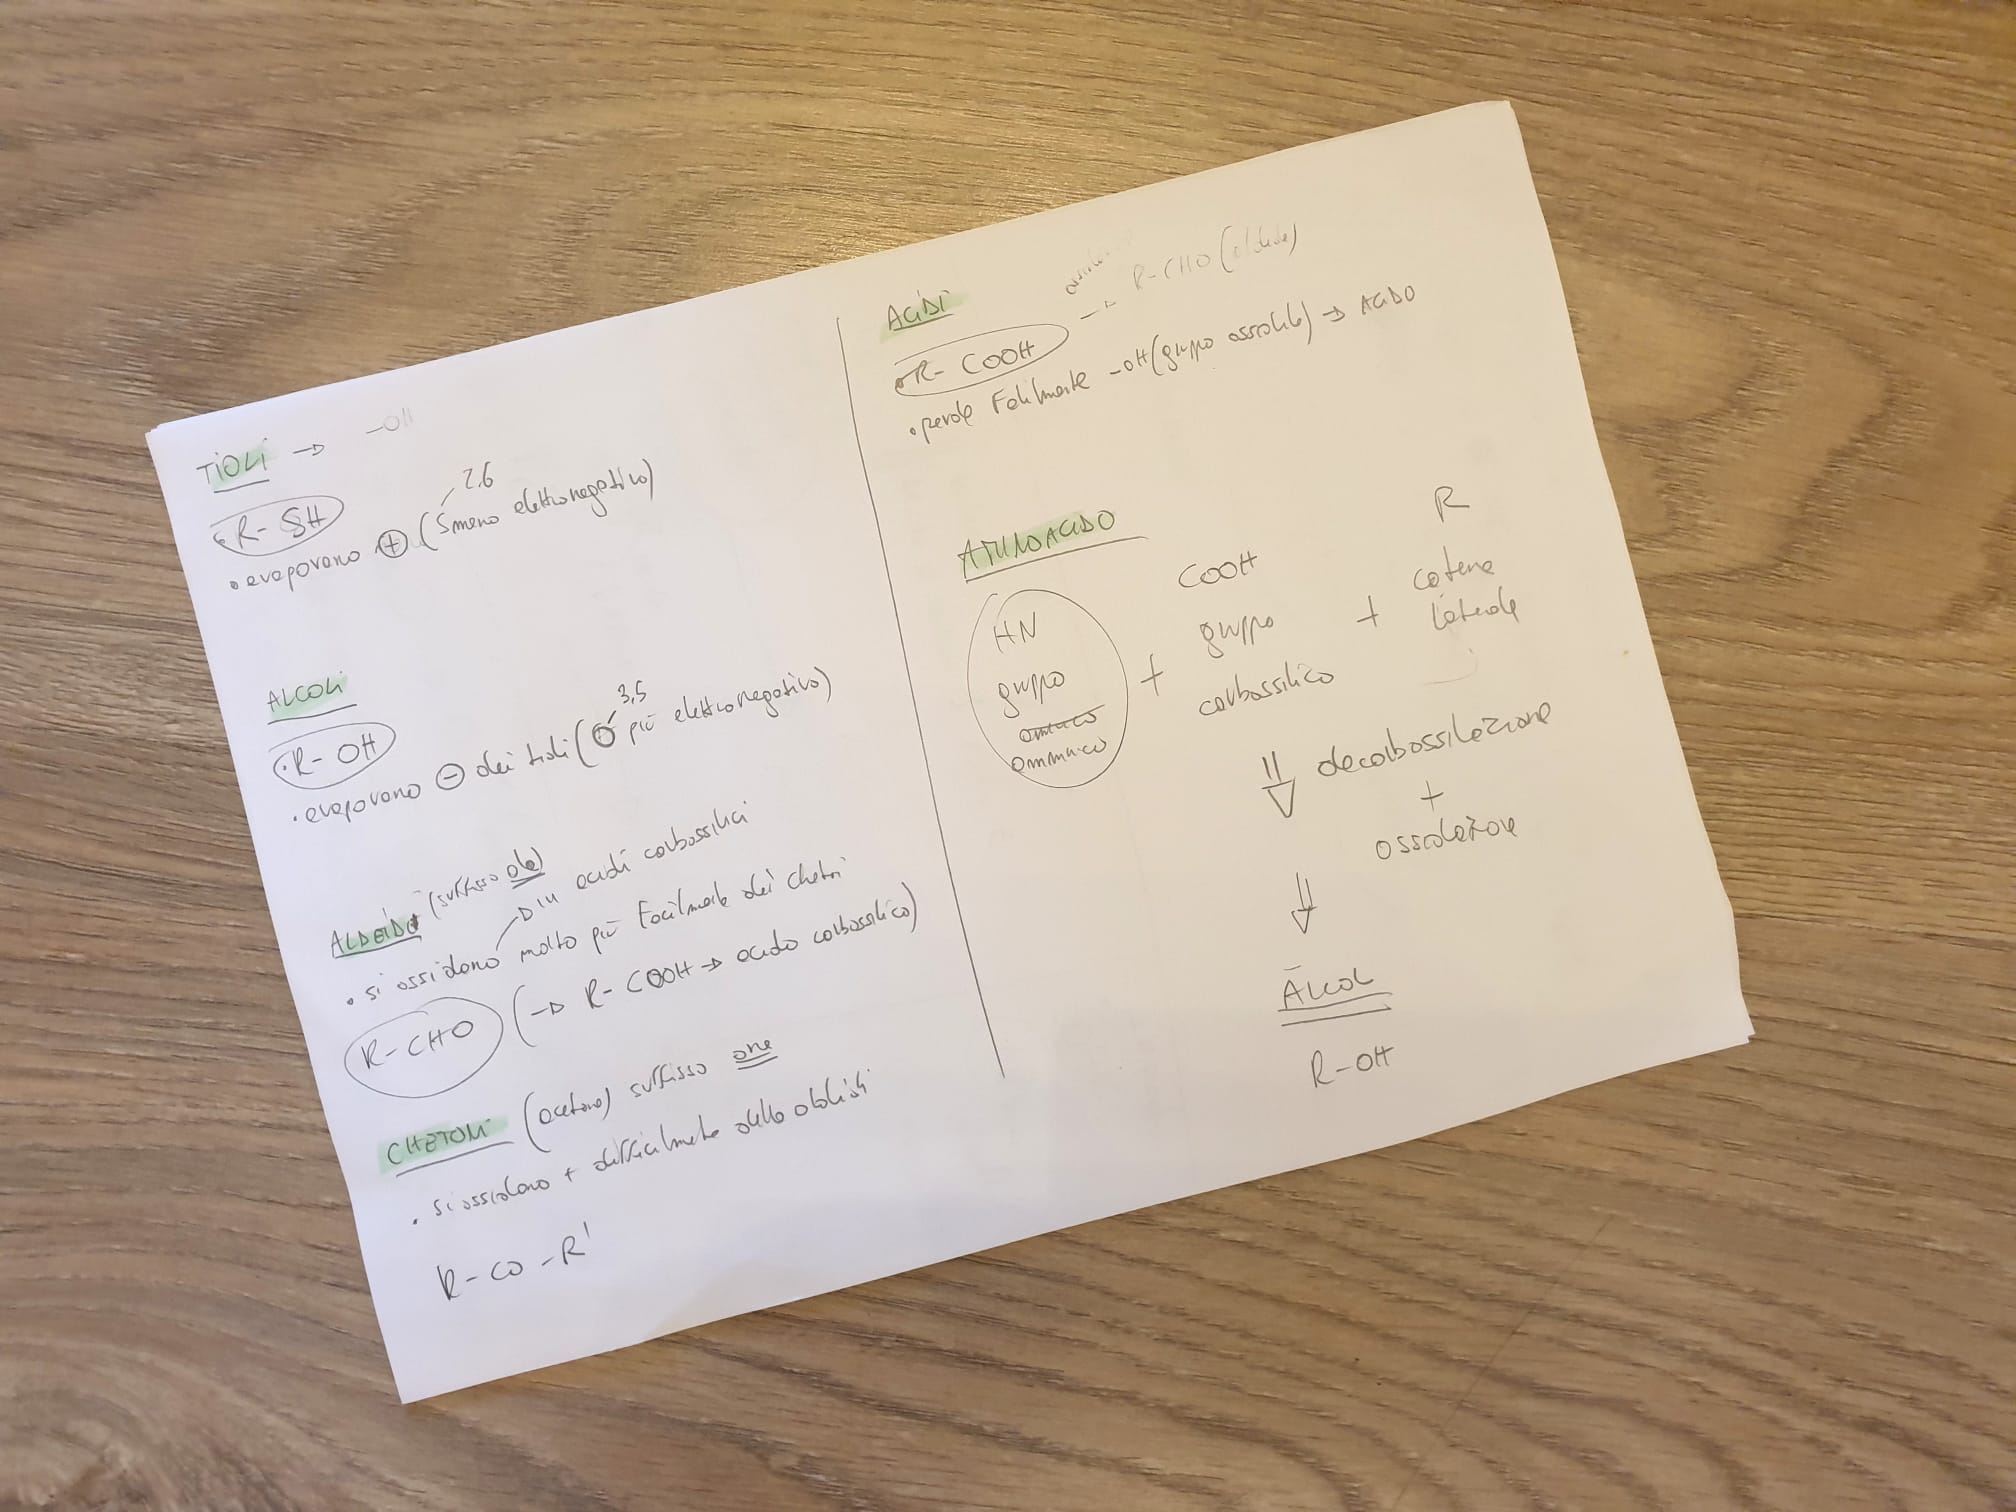 TIOLI → -OH
• R- SH
2.6
• evaporano + (S meno elettronegativo)
ALCOLI
• R- OH
3,5
• evaporano - dei tioli (O più elettronegativo)
ALDEIDI (suffisso ale)
in acidi carbossilici
• si ossidano molto più facilmente dei chetoni
R-CHO (→ R-COOH → acido carbossilico)
CHETONI (acetone) suffisso one
• si ossidano + difficilmente delle aldeidi
R-CO-R'
ACIDI
R-CHO (aldeide)
• R- COOH
• perde facilmente -OH (gruppo ossidrile) → ACIDO
AMINOACIDO
HN
gruppo
amminico
+
COOH
gruppo
carbossilico
+
R
catena
laterale
⇓ decarbossilazione
+
ossidazione
⇓
ALCOL
R-OH